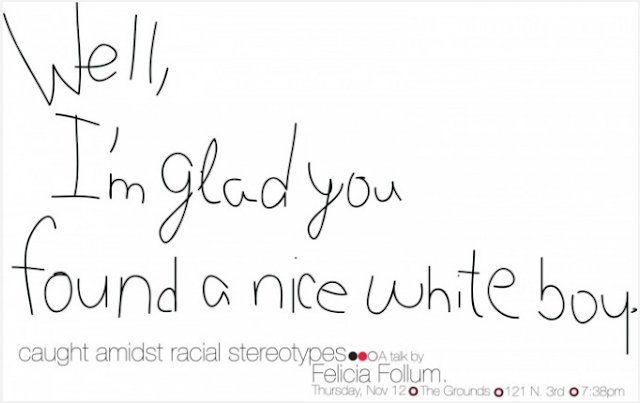 Well,
I'm glad you
found a nice white boy.
caught amidst racial stereotypes A talk by
Felicia Follum.
Thursday, Nov 12 The Grounds 121 N. 3rd 7:38pm